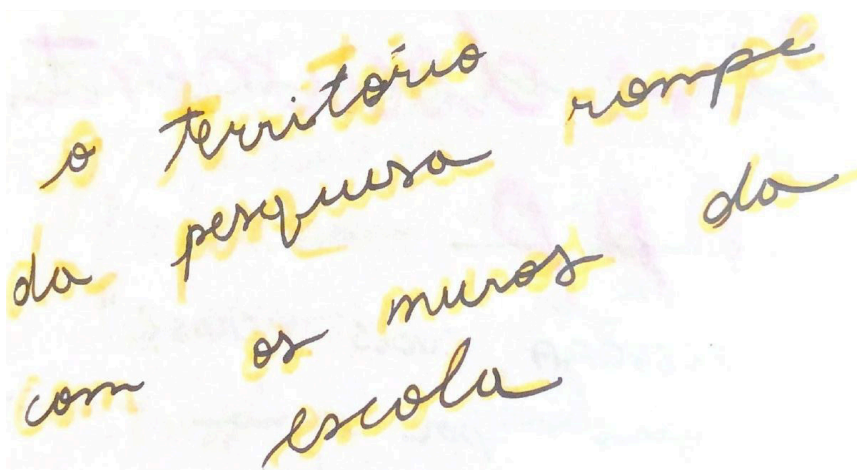 o território
da pesquisa rompe
com os muros da
escola